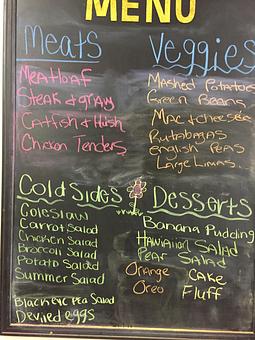 MENU
Meats
Meatloaf
Steak & graw
Catfish & Hush
Chicken Tenders
Veggies
Mashed Potatoes
Green Beans
Mac & cheese
Rutabagas
english Peas
Large Limas
Cold Sides
Coleslaw
Carrot Salad
Chicken Salad
Broccoli Salad
Potato Salad
Summer Salad
Black eye Pea Salad
Deviled eggs
Desserts
Banana Pudding
Hawaiian Salad
Pear Salad
Orange Cake
Oreo Fluff